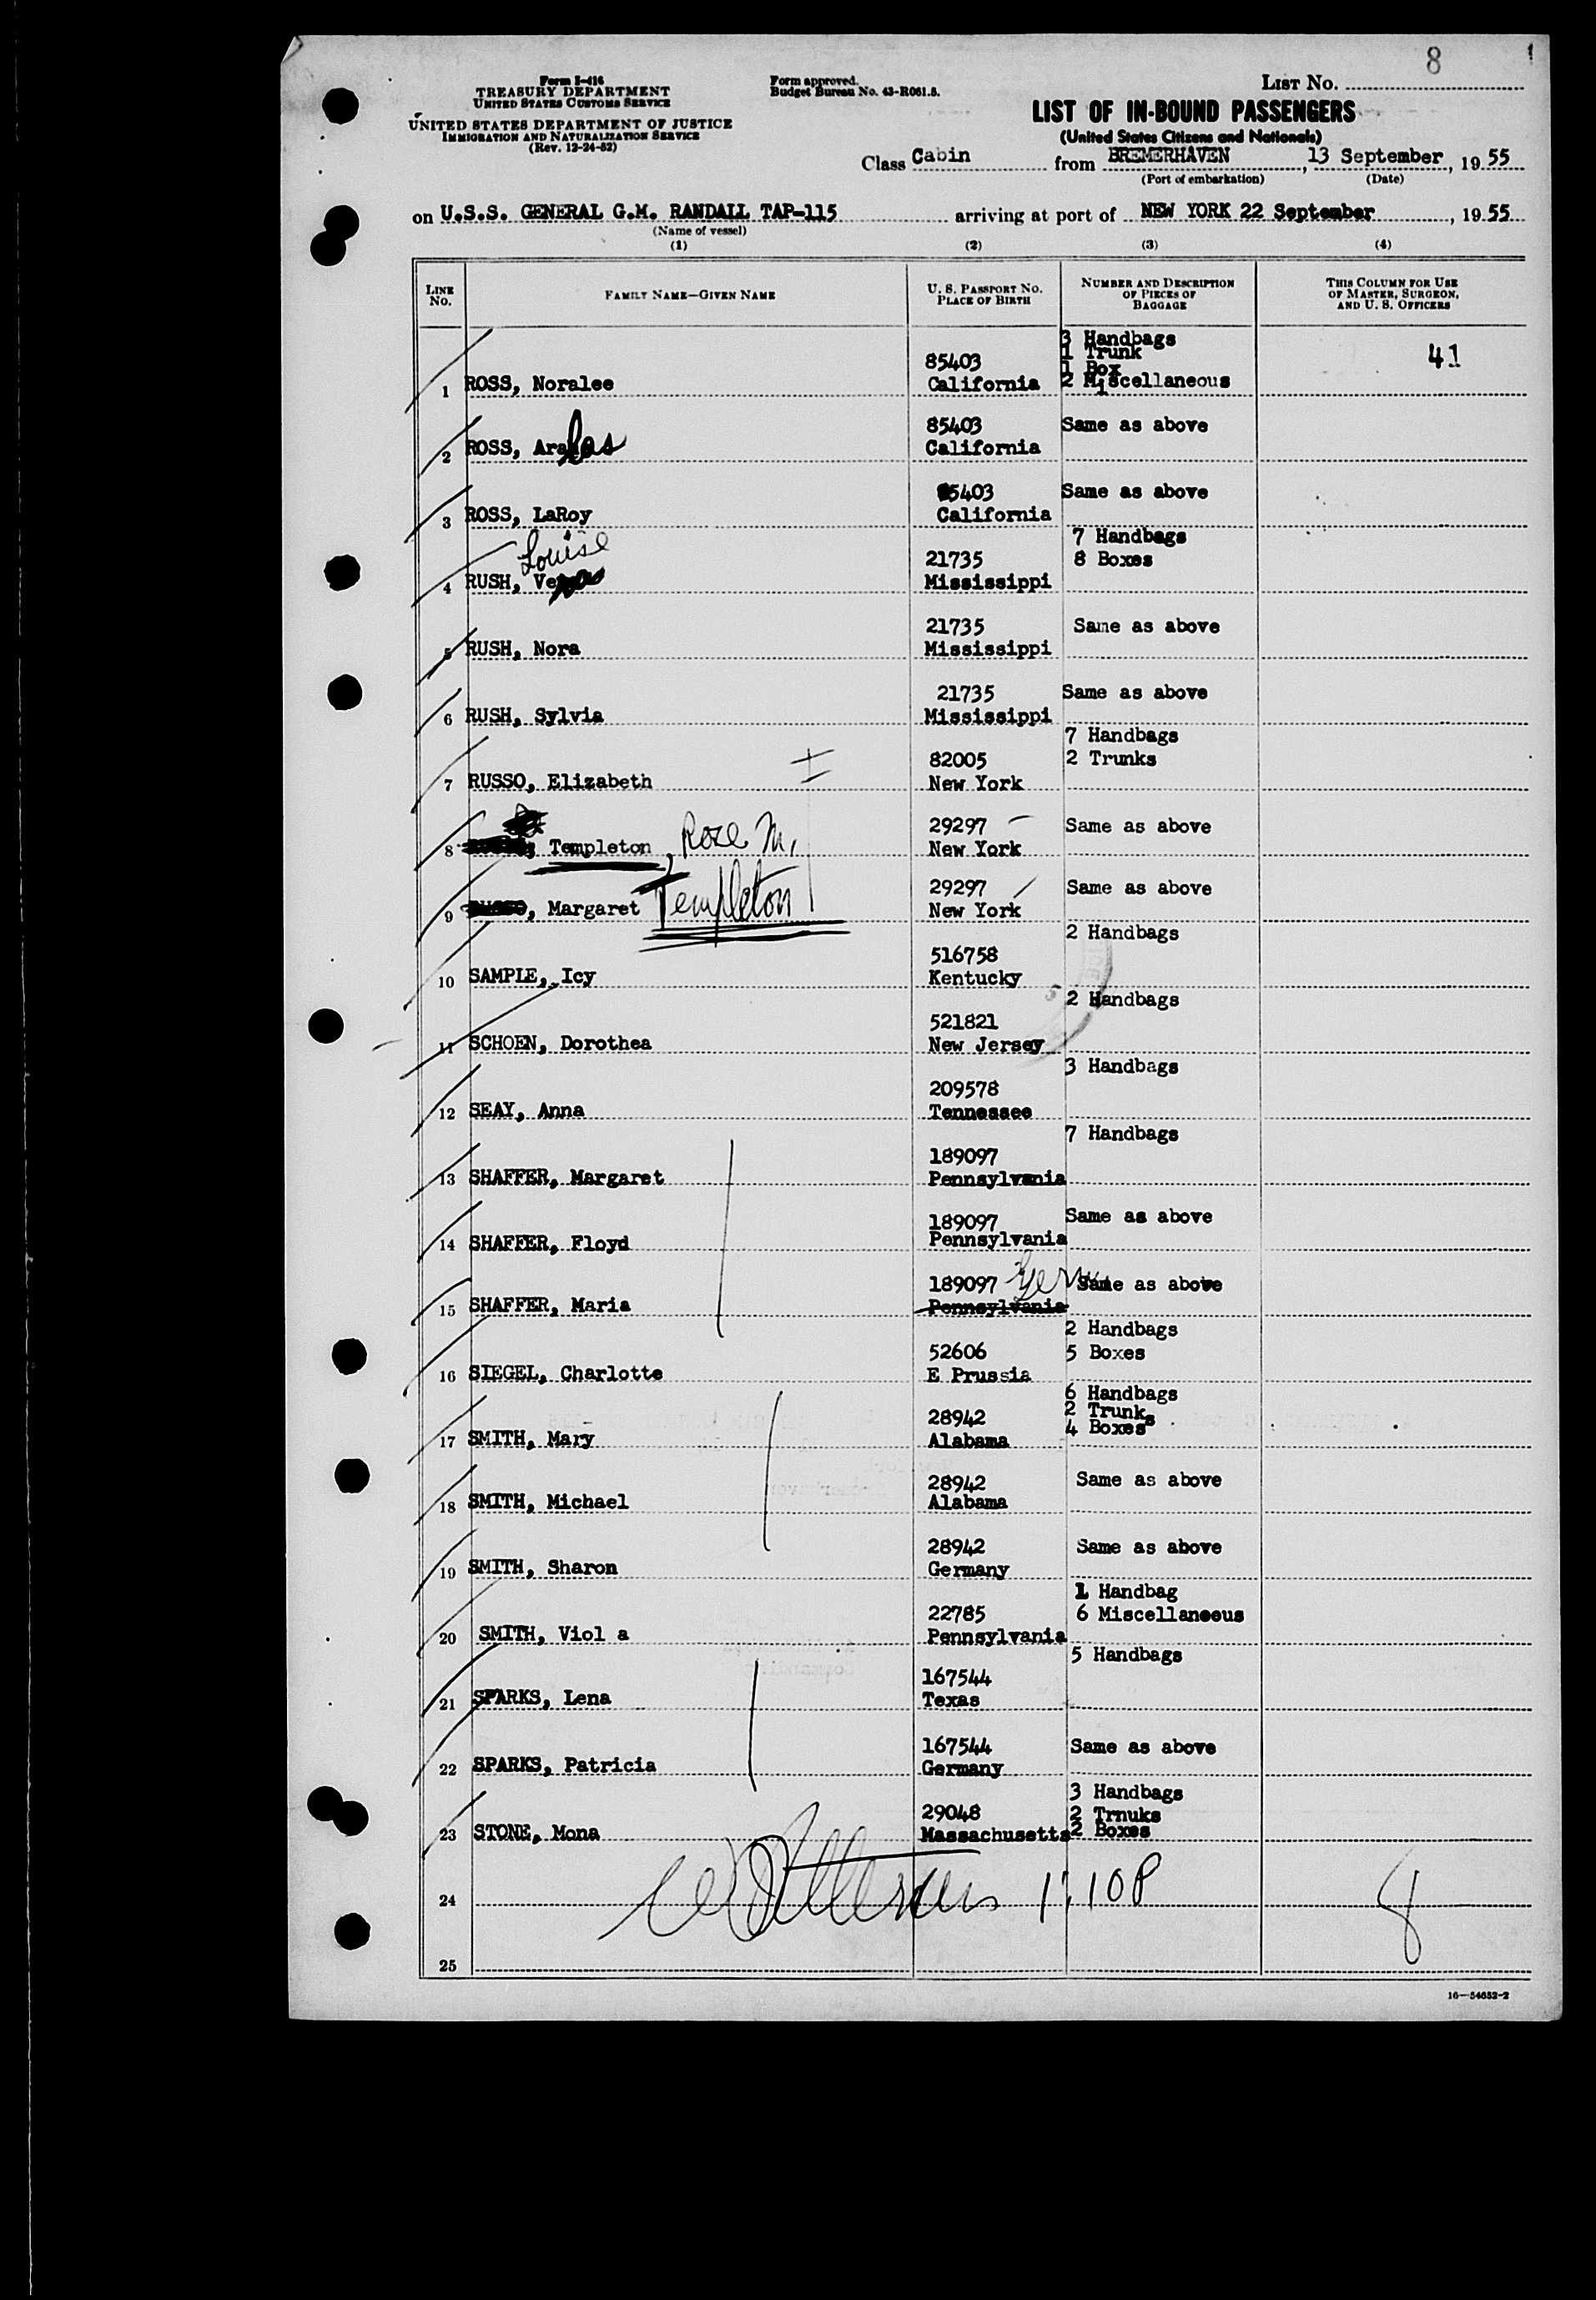 8
Form I-416
TREASURY DEPARTMENT
UNITED STATES CUSTOMS SERVICE
UNITED STATES DEPARTMENT OF JUSTICE
IMMIGRATION AND NATURALIZATION SERVICE
(Rev. 12-24-52)
Form approved.
Budget Bureau No. 43-R061.5.
LIST NO.
LIST OF IN-BOUND PASSENGERS
(United States Citizens and Nationals)
Class Cabin from BREMERHAVEN, 13 September, 1955
(Port of embarkation) (Date)
on U.S.S. GENERAL G.M. RANDALL TAP-115 arriving at port of NEW YORK 22 September, 1955
(Name of vessel)
(1) (2) (3) (4)
LINE NO. FAMILY NAME—GIVEN NAME U. S. PASSPORT NO. PLACE OF BIRTH NUMBER AND DESCRIPTION OF PIECES OF BAGGAGE THIS COLUMN FOR USE OF MASTER, SURGEON, AND U. S. OFFICERS
1 ROSS, Noralee 85403 California 3 Handbags 1 Trunk 1 Box 2 Miscellaneous 41
2 ROSS, 85403 California Same as above
3 ROSS, LaRoy 85403 California Same as above
4 RUSH, Louise 21735 Mississippi 7 Handbags 8 Boxes
5 RUSH, Nora 21735 Mississippi Same as above
6 RUSH, Sylvia 21735 Mississippi Same as above
7 RUSSO, Elizabeth 82005 New York 7 Handbags 2 Trunks
8 Templeton, Rose M. 29297 New York Same as above
9 , Margaret Templeton 29297 New York Same as above
10 SAMPLE, Icy 516758 Kentucky 2 Handbags
11 SCHOEN, Dorothea 521821 New Jersey 2 Handbags
12 SEAY, Anna 209578 Tennessee 3 Handbags
13 SHAFFER, Margaret 189097 Pennsylvania 7 Handbags
14 SHAFFER, Floyd 189097 Pennsylvania Same as above
15 SHAFFER, Maria 189097 Pennsylvania Same as above
16 SIEGEL, Charlotte 52606 E Prussia 2 Handbags 5 Boxes
17 SMITH, Mary 28942 Alabama 6 Handbags 2 Trunks 4 Boxes
18 SMITH, Michael 28942 Alabama Same as above
19 SMITH, Sharon 28942 Germany Same as above
20 SMITH, Viol a 22785 Pennsylvania 1 Handbag 6 Miscellaneous
21 SPARKS, Lena 167544 Texas 5 Handbags
22 SPARKS, Patricia 167544 Germany Same as above
23 STONE, Mona 29048 Massachusetts 3 Handbags 2 Trnuks 2 Boxes
24 8
25
16—54652-2